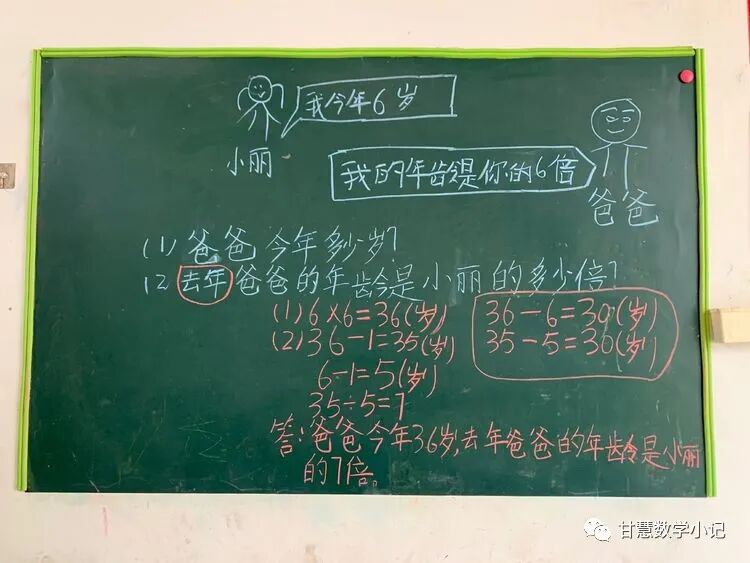 我今年6岁
小丽
我的年龄是你的6倍
爸爸
(1)爸爸今年多少岁?
(2)去年爸爸的年龄是小丽的多少倍?
(1)6×6=36(岁)
(2)36-1=35(岁)
6-1=5(岁)
35÷5=7
36-6=30(岁)
35-5=30(岁)
答:爸爸今年36岁,去年爸爸的年龄是小丽
的7倍。
甘慧数学小记